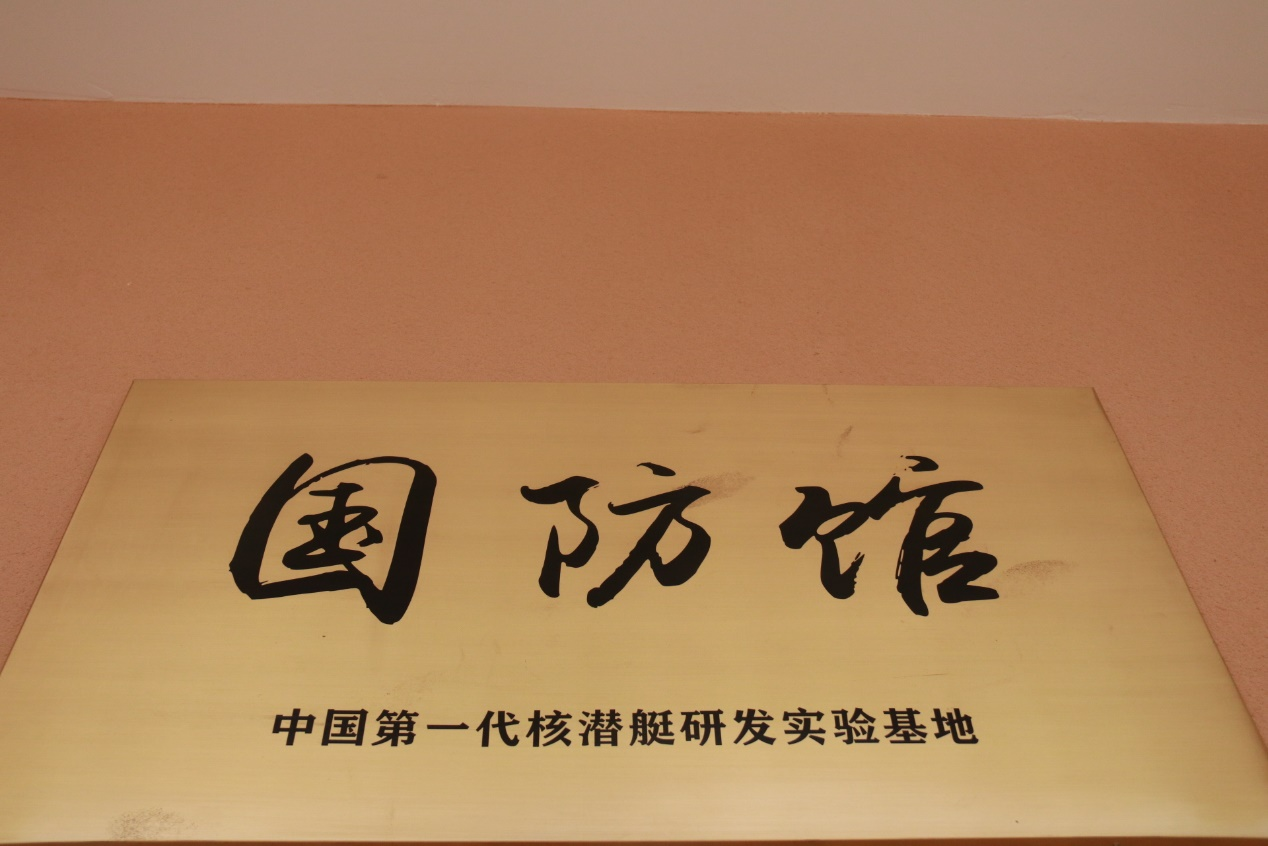 国防馆
中国第一代核潜艇研发实验基地